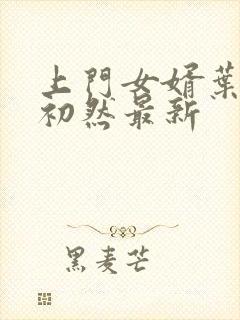 上門女婿葉
初然最新
黑麦芒